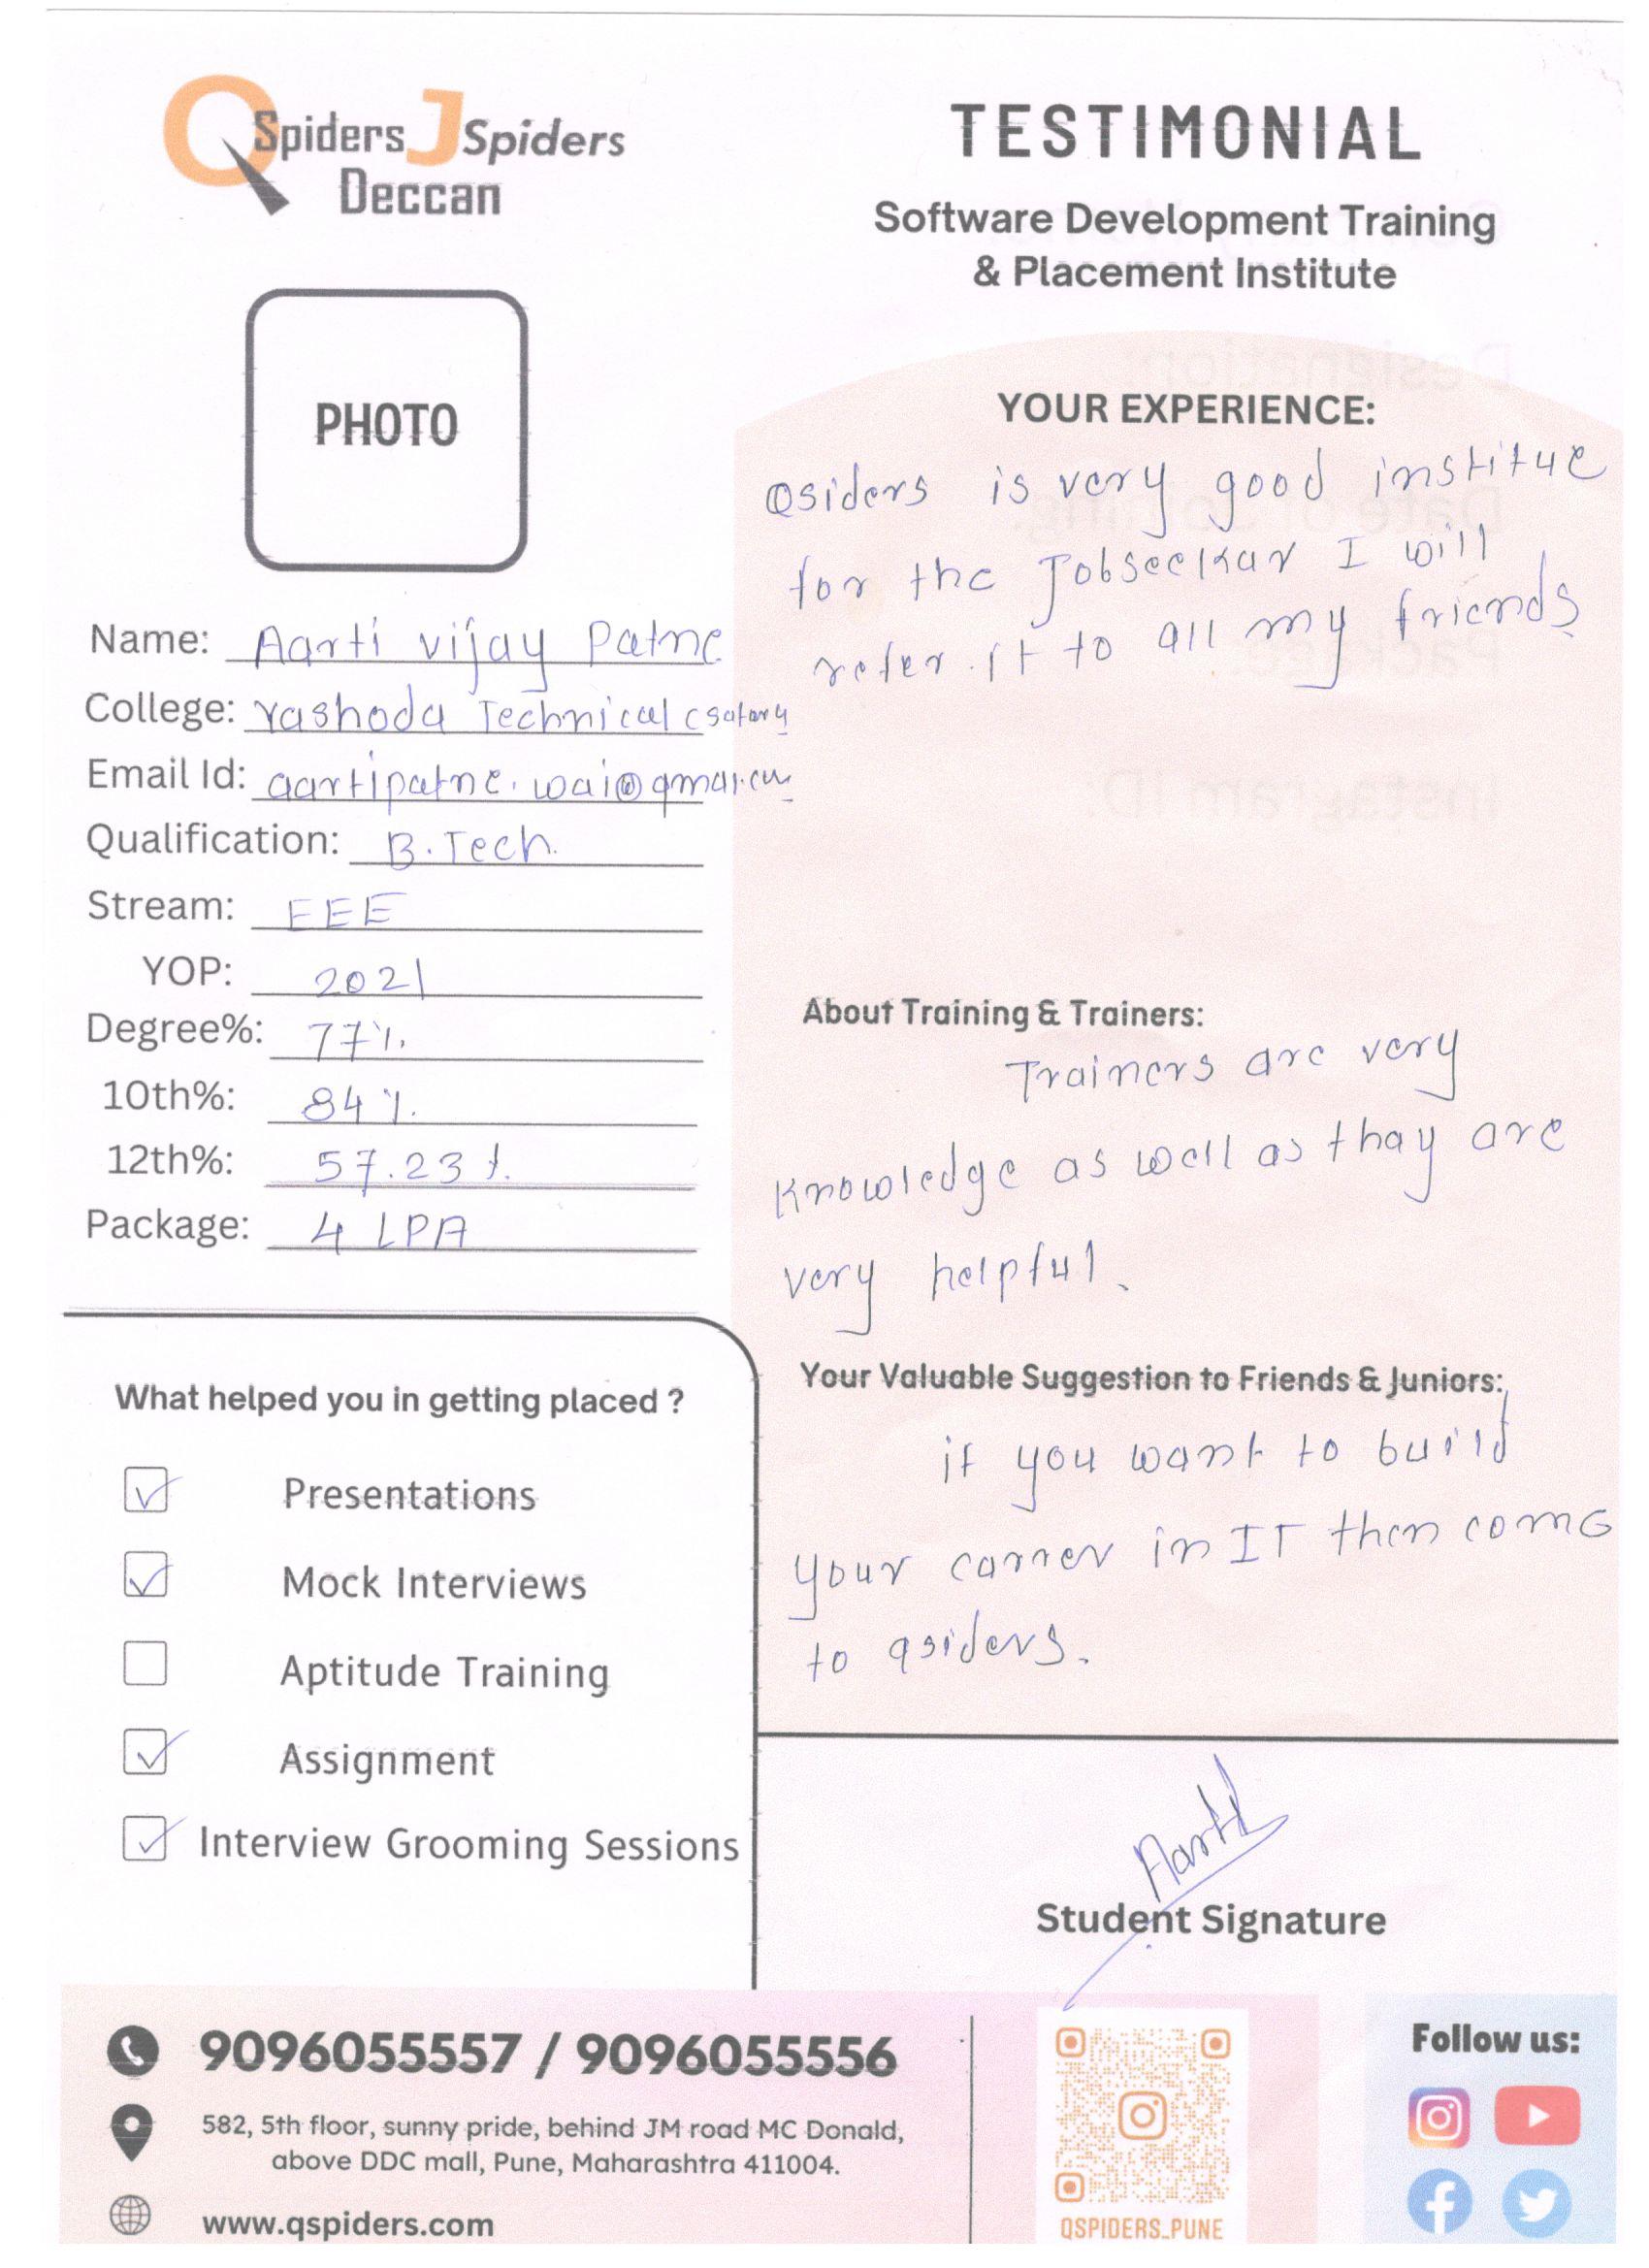 QSpiders JSpiders
Deccan
TESTIMONIAL
Software Development Training
& Placement Institute
PHOTO
Name: Aarti vijay Patne
College: Yashoda Technical csatary
Email Id: aartipatne.wai@gmai.com
Qualification: B.Tech.
Stream: EEE
YOP: 2021
Degree%: 77%
10th%: 84%
12th%: 57.23%
Package: 4 LPA
What helped you in getting placed ?
Presentations
Mock Interviews
Aptitude Training
Assignment
Interview Grooming Sessions
YOUR EXPERIENCE:
Qsiders is very good institue
for the Jobseekar I will
refer it to all my friends
About Training & Trainers:
Trainers are very
knowledge as well as thay are
very helpful.
Your Valuable Suggestion to Friends & Juniors:
if you want to build
your carrer in IT then come
to qsiders.
Aarti
Student Signature
9096055557 / 9096055556
582, 5th floor, sunny pride, behind JM road MC Donald,
above DDC mall, Pune, Maharashtra 411004.
www.qspiders.com
QSPIDERS_PUNE
Follow us: